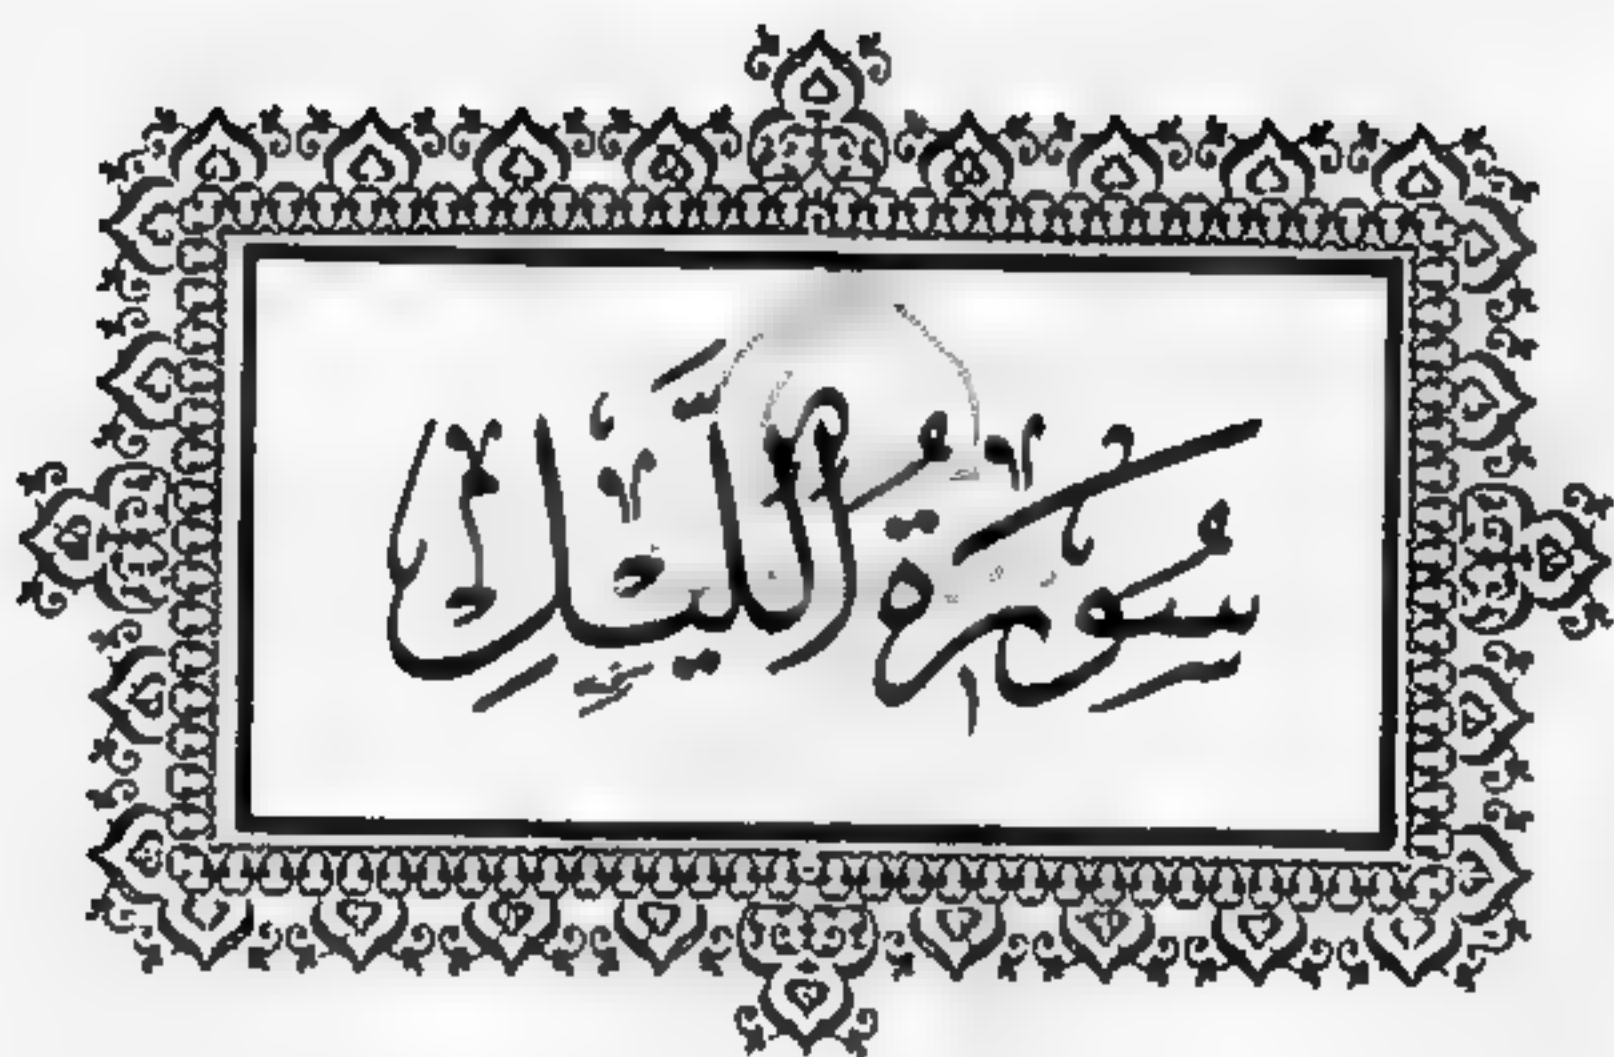 سُورَةُ اللَّيْلِ